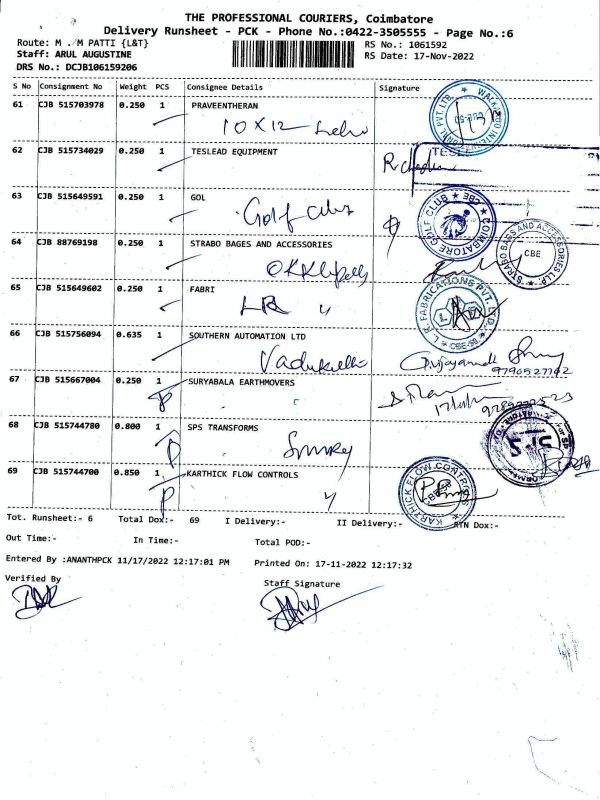 THE PROFESSIONAL COURIERS, Coimbatore
Delivery Runsheet - PCK - Phone No.:0422-3505555 - Page No.:6
Route: M . M PATTI {L&T}
RS No.: 1061592
Staff: ARUL AUGUSTINE
RS Date: 17-Nov-2022
DRS No.: DCJB106159206
S No Consignment No Weight PCS Consignee Details Signature
61 CJB 515703978 0.250 1 PRAVEENTHERAN
10 X 12
62 CJB 515734029 0.250 1 TESLEAD EQUIPMENT
63 CJB 515649591 0.250 1 GOL
Golf Club
COIMBATORE GOLF CLUB ★ CBE ★
64 CJB 88769198 0.250 1 STRABO BAGES AND ACCESSORIES
STRABO BAGS AND ACCESSORIES LLP.
CBE
65 CJB 515649602 0.250 1 FABRI
LR "
L.R. FABRICATIONS PVT. LTD.
66 CJB 515756094 0.635 1 SOUTHERN AUTOMATION LTD
67 CJB 515667004 0.250 1 SURYABALA EARTHMOVERS
68 CJB 515744780 0.800 1 SPS TRANSFORMS
SPS
69 CJB 515744700 0.850 1 KARTHICK FLOW CONTROLS
KARTHICK FLOW CONTROLS
Tot. Runsheet:- 6 Total Dox:- 69 I Delivery:- II Delivery:- RTN Dox:-
Out Time:- In Time:- Total POD:-
Entered By :ANANTHPCK 11/17/2022 12:17:01 PM Printed On: 17-11-2022 12:17:32
Verified By
Staff Signature